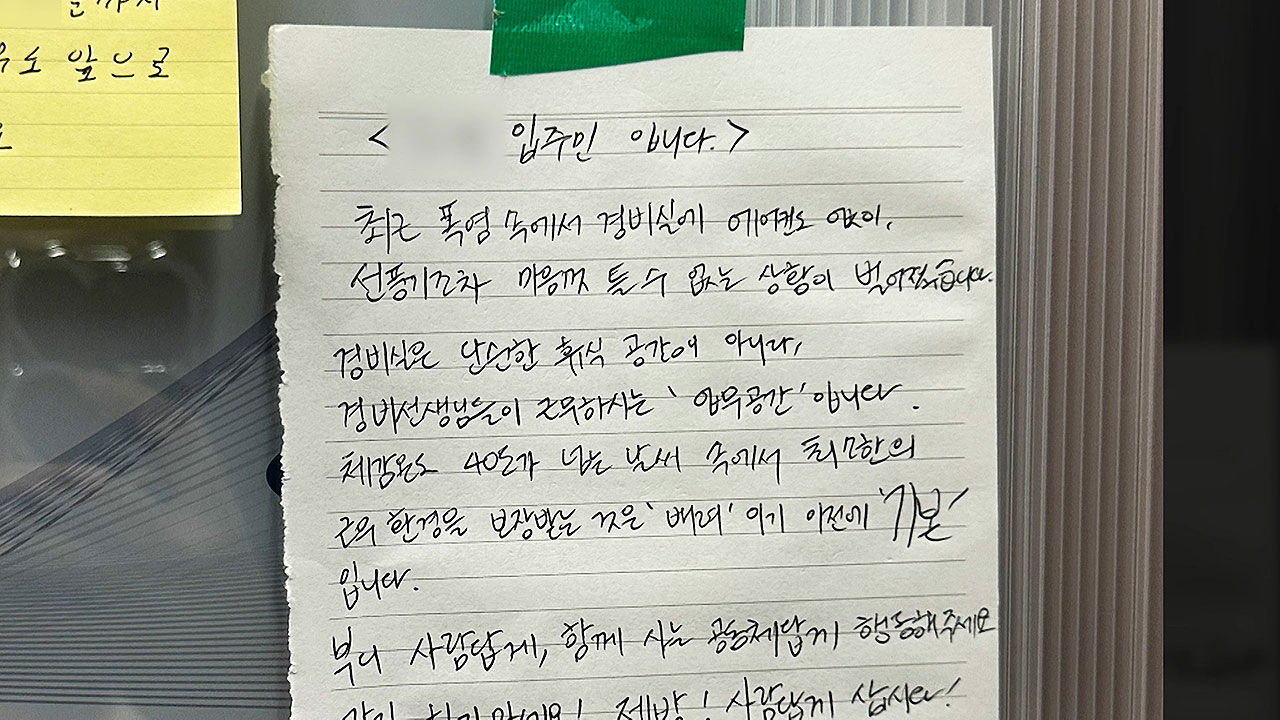 앞으로
< 입주민 입니다.>
최근 폭염 속에서 경비실에 에어컨도 없이,
선풍기조차 마음껏 틀 수 없는 상황이 벌어졌습니다.
경비실은 단순한 휴식 공간이 아니라,
경비선생님들이 근무하시는 '업무공간' 입니다.
체감온도 40도가 넘는 날씨 속에서 최소한의
근무 환경을 보장받는 것은 '배려' 이기 이전에 '기본'
입니다.
부디 사람답게, 함께 사는 공동체답게 행동해주세요
제발! 사람답게 삽시다!